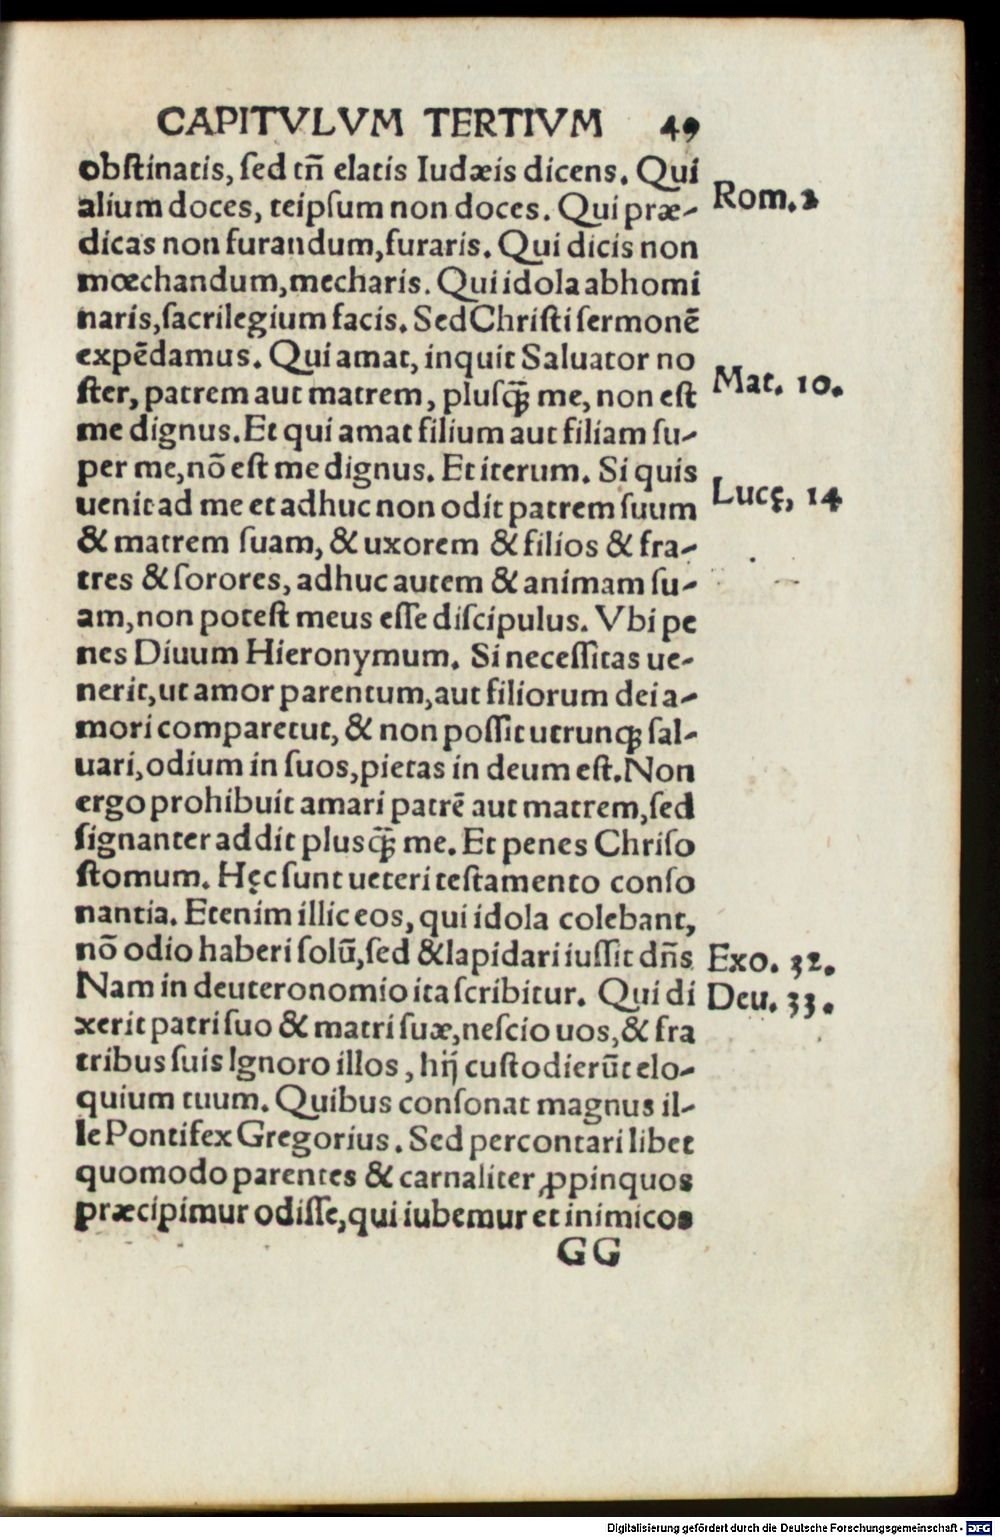 CAPITVLVM TERTIVM 49
obſtinatis, ſed tñ elatis Iudæis dicens. Qui
alium doces, teipſum non doces. Qui præ-
Rom. 2
dicas non furandum, furaris. Qui dicis non
mœchandum, mecharis. Qui idola abhomi
naris, ſacrilegium facis. Sed Chriſti ſermonē
expēdamus. Qui amat, inquit Saluator no
ſter, patrem aut matrem, pluſꝗ̃ me, non eſt
Mat. 10.
me dignus. Et qui amat filium aut filiam ſu-
per me, nō eſt me dignus. Et iterum. Si quis
uenit ad me et adhuc non odit patrem ſuum
Lucę, 14
& matrem ſuam, & uxorem & filios & fra-
tres & ſorores, adhuc autem & animam ſu-
am, non poteſt meus eſſe diſcipulus. Vbi pe
nes Diuum Hieronymum. Si neceſſitas ue-
nerit, ut amor parentum, aut filiorum dei a-
mori comparetut, & non poſſit utrunꝗ ſal-
uari, odium in ſuos, pietas in deum eſt. Non
ergo prohibuit amari patrē aut matrem, ſed
ſignanter addit pluſꝗ̃ me. Et penes Chriſo
ſtomum. Hęc ſunt ueteri teſtamento conſo
nantia. Etenim illic eos, qui idola colebant,
nō odio haberi ſolū, ſed & lapidari iuſſit dñs
Exo. 32.
Nam in deuteronomio ita ſcribitur. Qui di
Deu. 33.
xerit patri ſuo & matri ſuæ, neſcio uos, & fra
tribus ſuis Ignoro illos, hij cuſtodierūt elo-
quium tuum. Quibus conſonat magnus il-
le Pontifex Gregorius. Sed percontari libet
quomodo parentes & carnaliter ꝓpinquos
præcipimur odiſſe, qui iubemur et inimicos
GG
Digitalisierung gefördert durch die Deutsche Forschungsgemeinschaft - DFG